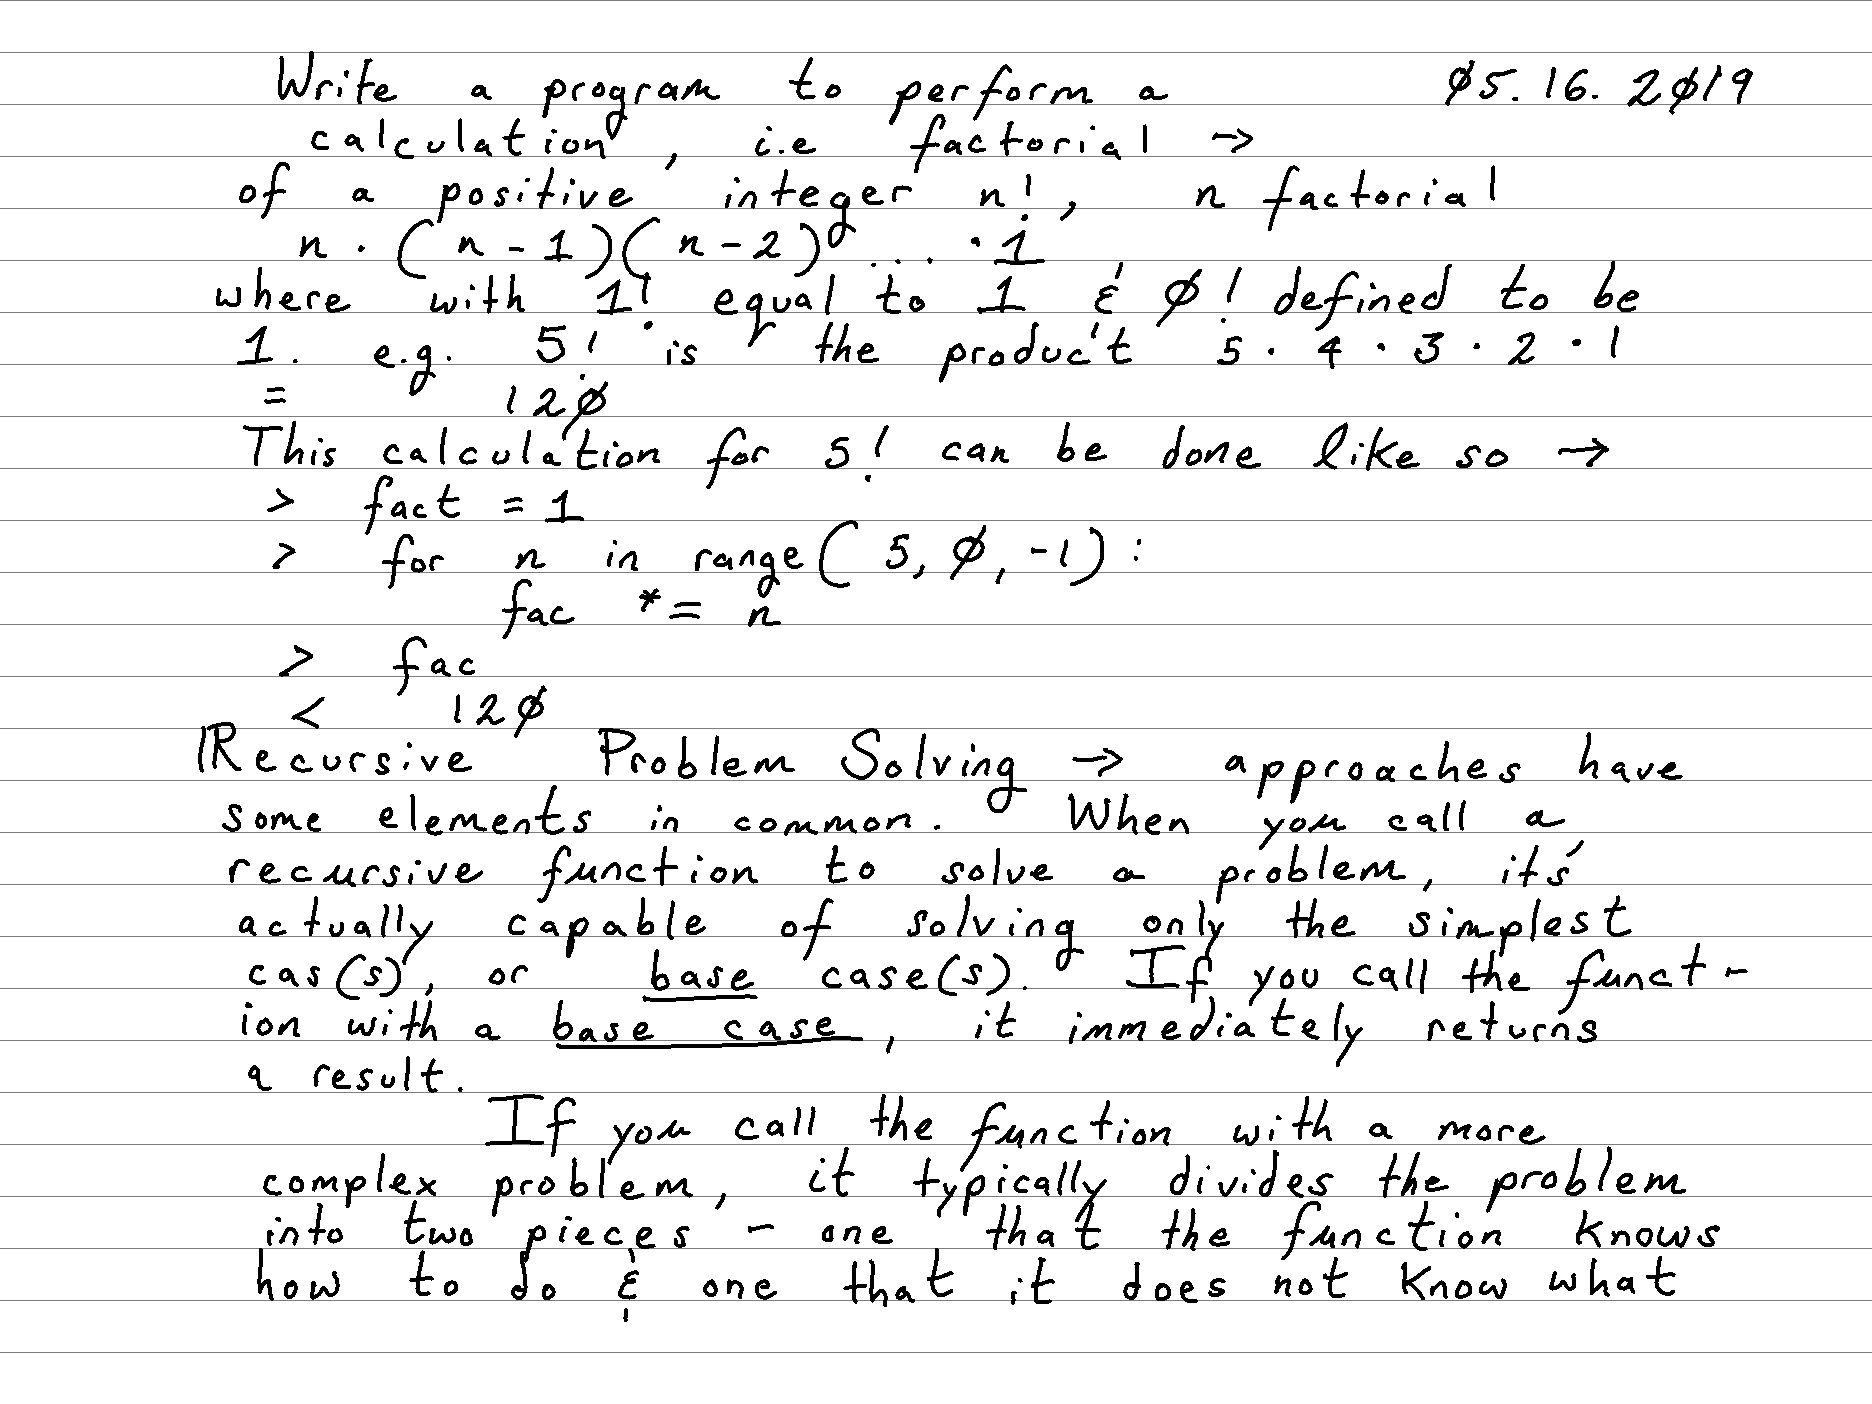 Write a program to perform a ø5.16.2ø19
calculation, i.e factorial →
of a positive integer n!, n factorial
n · (n-1)(n-2) ... · 1
where with 1! equal to 1 & ø! defined to be
1. e.g. 5! is the product 5 · 4 · 3 · 2 · 1
= 12ø
This calculation for 5! can be done like so →
> fact = 1
> for n in range( 5, ø, -1):
fac *= n
> fac
< 12ø
Recursive Problem Solving → approaches have
some elements in common. When you call a
recursive function to solve a problem, it's
actually capable of solving only the simplest
cas(s), or base case(s). If you call the funct-
ion with a base case, it immediately returns
a result.
If you call the function with a more
complex problem, it typically divides the problem
into two pieces - one that the function knows
how to do & one that it does not know what